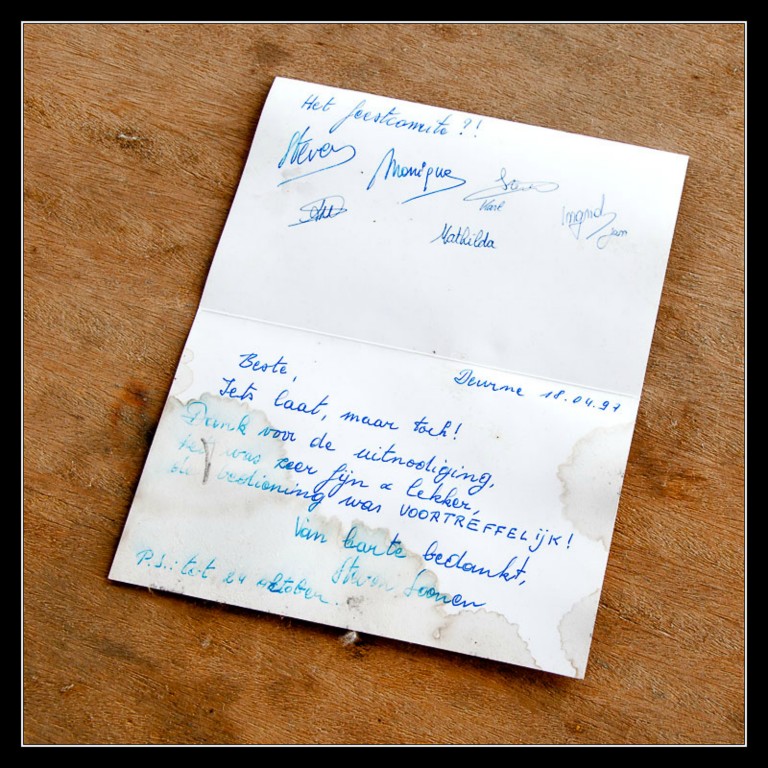 Het feestcomité?!
Steven Monique
Karl Ingrid
Jan
Mathilda
Beste,
Deurne 18.04.97
Iets laat, maar toch!
Dank voor de uitnodiging,
het was zeer fijn & lekker,
de bediening was VOORTREFFELIJK!
Van harte bedankt,
Steven
P.S.: tot 24 oktober.